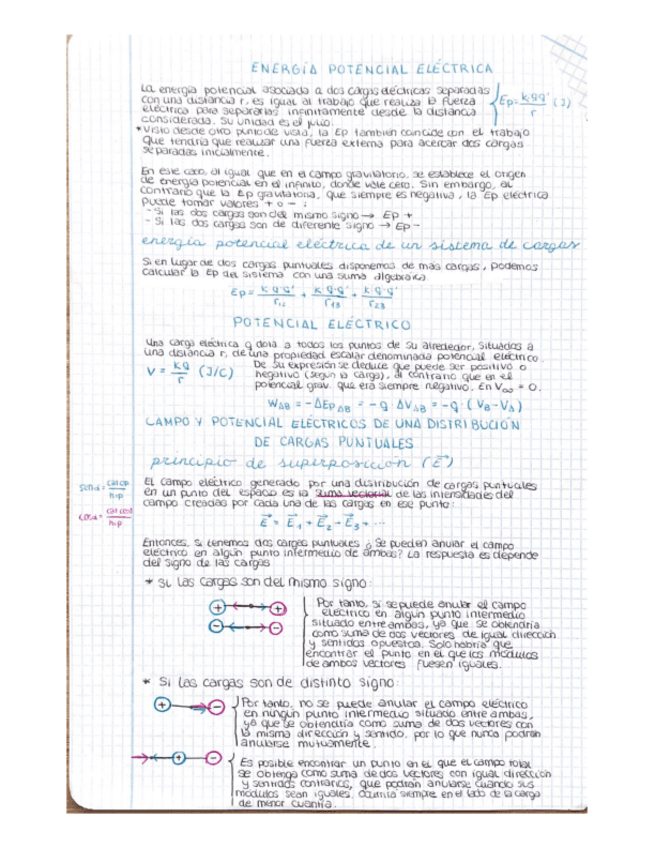 ENERGÍA POTENCIAL ELÉCTRICA
La energía potencial asociada a dos cargas eléctricas separadas
con una distancia r, es igual al trabajo que realiza la fuerza
eléctrica para separarlas infinitamente desde la distancia
considerada. Su unidad es el julio.
Ep = k q q' / r (J)
* Visto desde otro punto de vista, la Ep también coincide con el trabajo
que tendría que realizar una fuerza externa para acercar dos cargas
separadas inicialmente.
En este caso, al igual que en el campo gravitatorio, se establece el origen
de energía potencial en el infinito, donde vale cero. Sin embargo, al
contrario que la Ep gravitatoria, que siempre es negativa, la Ep eléctrica
puede tomar valores + o - :
- Si las dos cargas son del mismo signo → Ep +
- Si las dos cargas son de diferente signo → Ep -
energía potencial eléctrica de un sistema de cargas
Si en lugar de dos cargas puntuales disponemos de más cargas, podemos
calcular la Ep del sistema con una suma algebraica.
Ep = k q q' / r12 + k q q' / r13 + k q q' / r23
POTENCIAL ELÉCTRICO
Una carga eléctrica q dota a todos los puntos de su alrededor, situados a
una distancia r, de una propiedad escalar denominada potencial eléctrico.
V = k q / r (J/C)
De su expresión se deduce que puede ser positivo o
negativo (según la carga), al contrario que en el
potencial grav. que era siempre negativo. En V∞ = 0.
WAB = -ΔEpAB = -q ΔVAB = -q · (VB - VA)
CAMPO Y POTENCIAL ELÉCTRICOS DE UNA DISTRIBUCIÓN
DE CARGAS PUNTUALES
principio de superposición (E⃗)
El campo eléctrico generado por una distribución de cargas puntuales
en un punto del espacio es la suma vectorial de las intensidades del
campo creadas por cada una de las cargas en ese punto:
senα = cat op / hip
cosα = cat cont / hip
E⃗ = E⃗1 + E⃗2 + E⃗3 + ...
Entonces, si tenemos dos cargas puntuales ¿Se pueden anular el campo
eléctrico en algún punto intermedio de ambas? La respuesta es depende
del signo de las cargas
* Si las cargas son del mismo signo:
+ +
- -
Por tanto, si se puede anular el campo
eléctrico en algún punto intermedio
situado entre ambas, ya que se obtendría
como suma de dos vectores de igual dirección
y sentidos opuestos. Solo habría que
encontrar el punto en el que los módulos
de ambos vectores fuesen iguales.
* Si las cargas son de distinto signo:
+ -
Por tanto, no se puede anular el campo eléctrico
en ningún punto intermedio situado entre ambas,
ya que se obtendría como suma de dos vectores con
la misma dirección y sentido, por lo que nunca podrán
anularse mutuamente.
+ -
Es posible encontrar un punto en el que el campo total
se obtenga como suma de dos vectores con igual dirección
y sentidos contrarios, que podrán anularse cuando sus
módulos sean iguales. Ocurriría siempre en el lado de la carga
de menor cuantía.